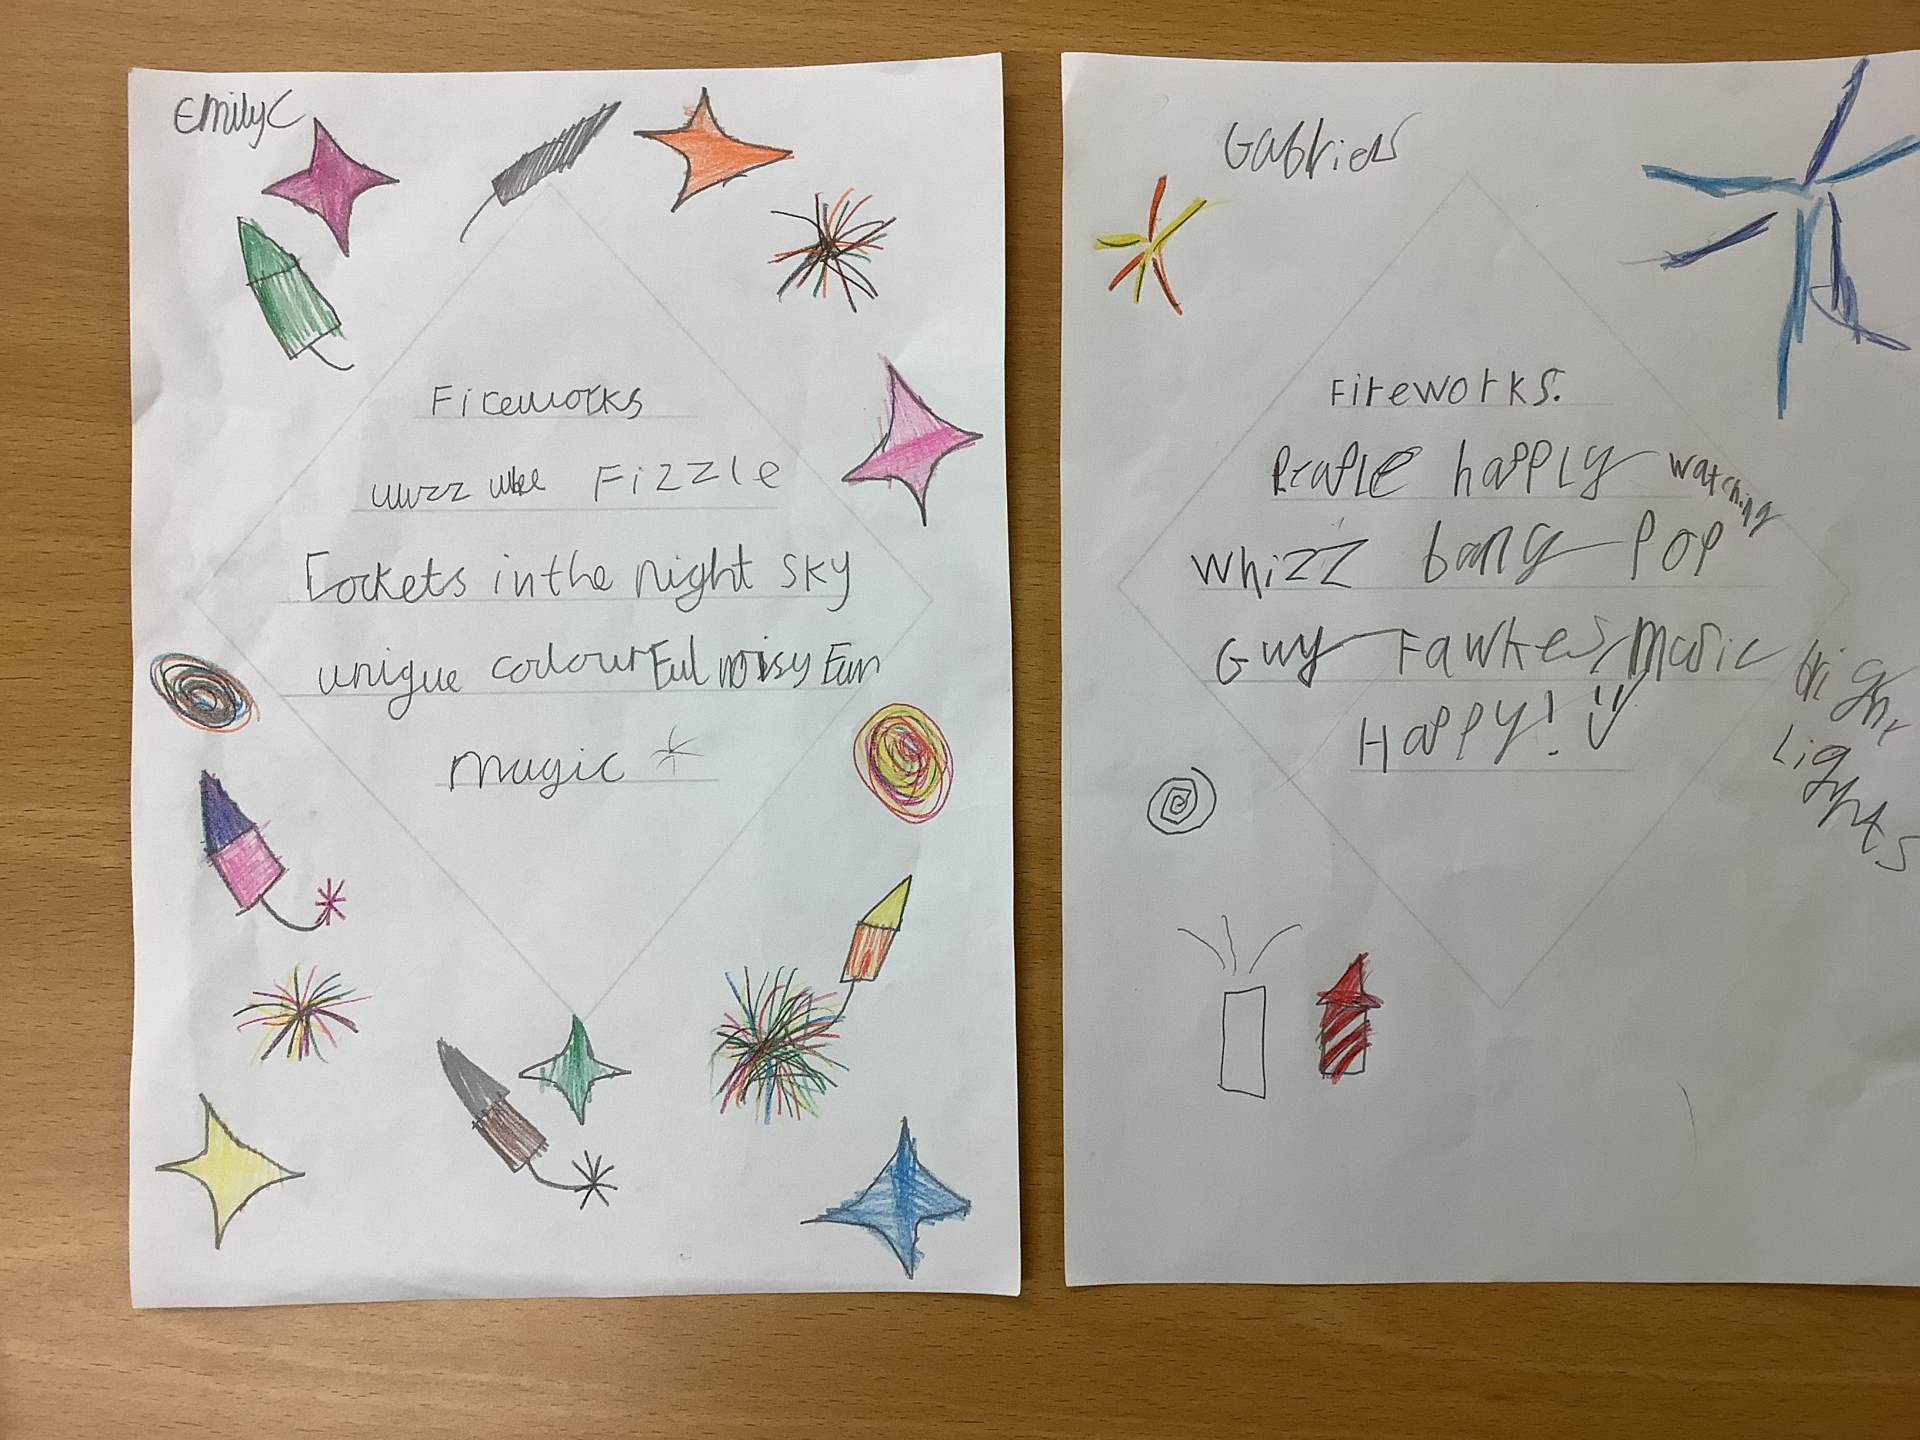 Emily C
Fireworks
Fizzle
Rockets in the night sky
unique colourful noisy Fun
magic
Gabriel S
Fireworks.
People happly watching
whizz bang pop
Guy Fawkes, music bright
Lights
Happy!